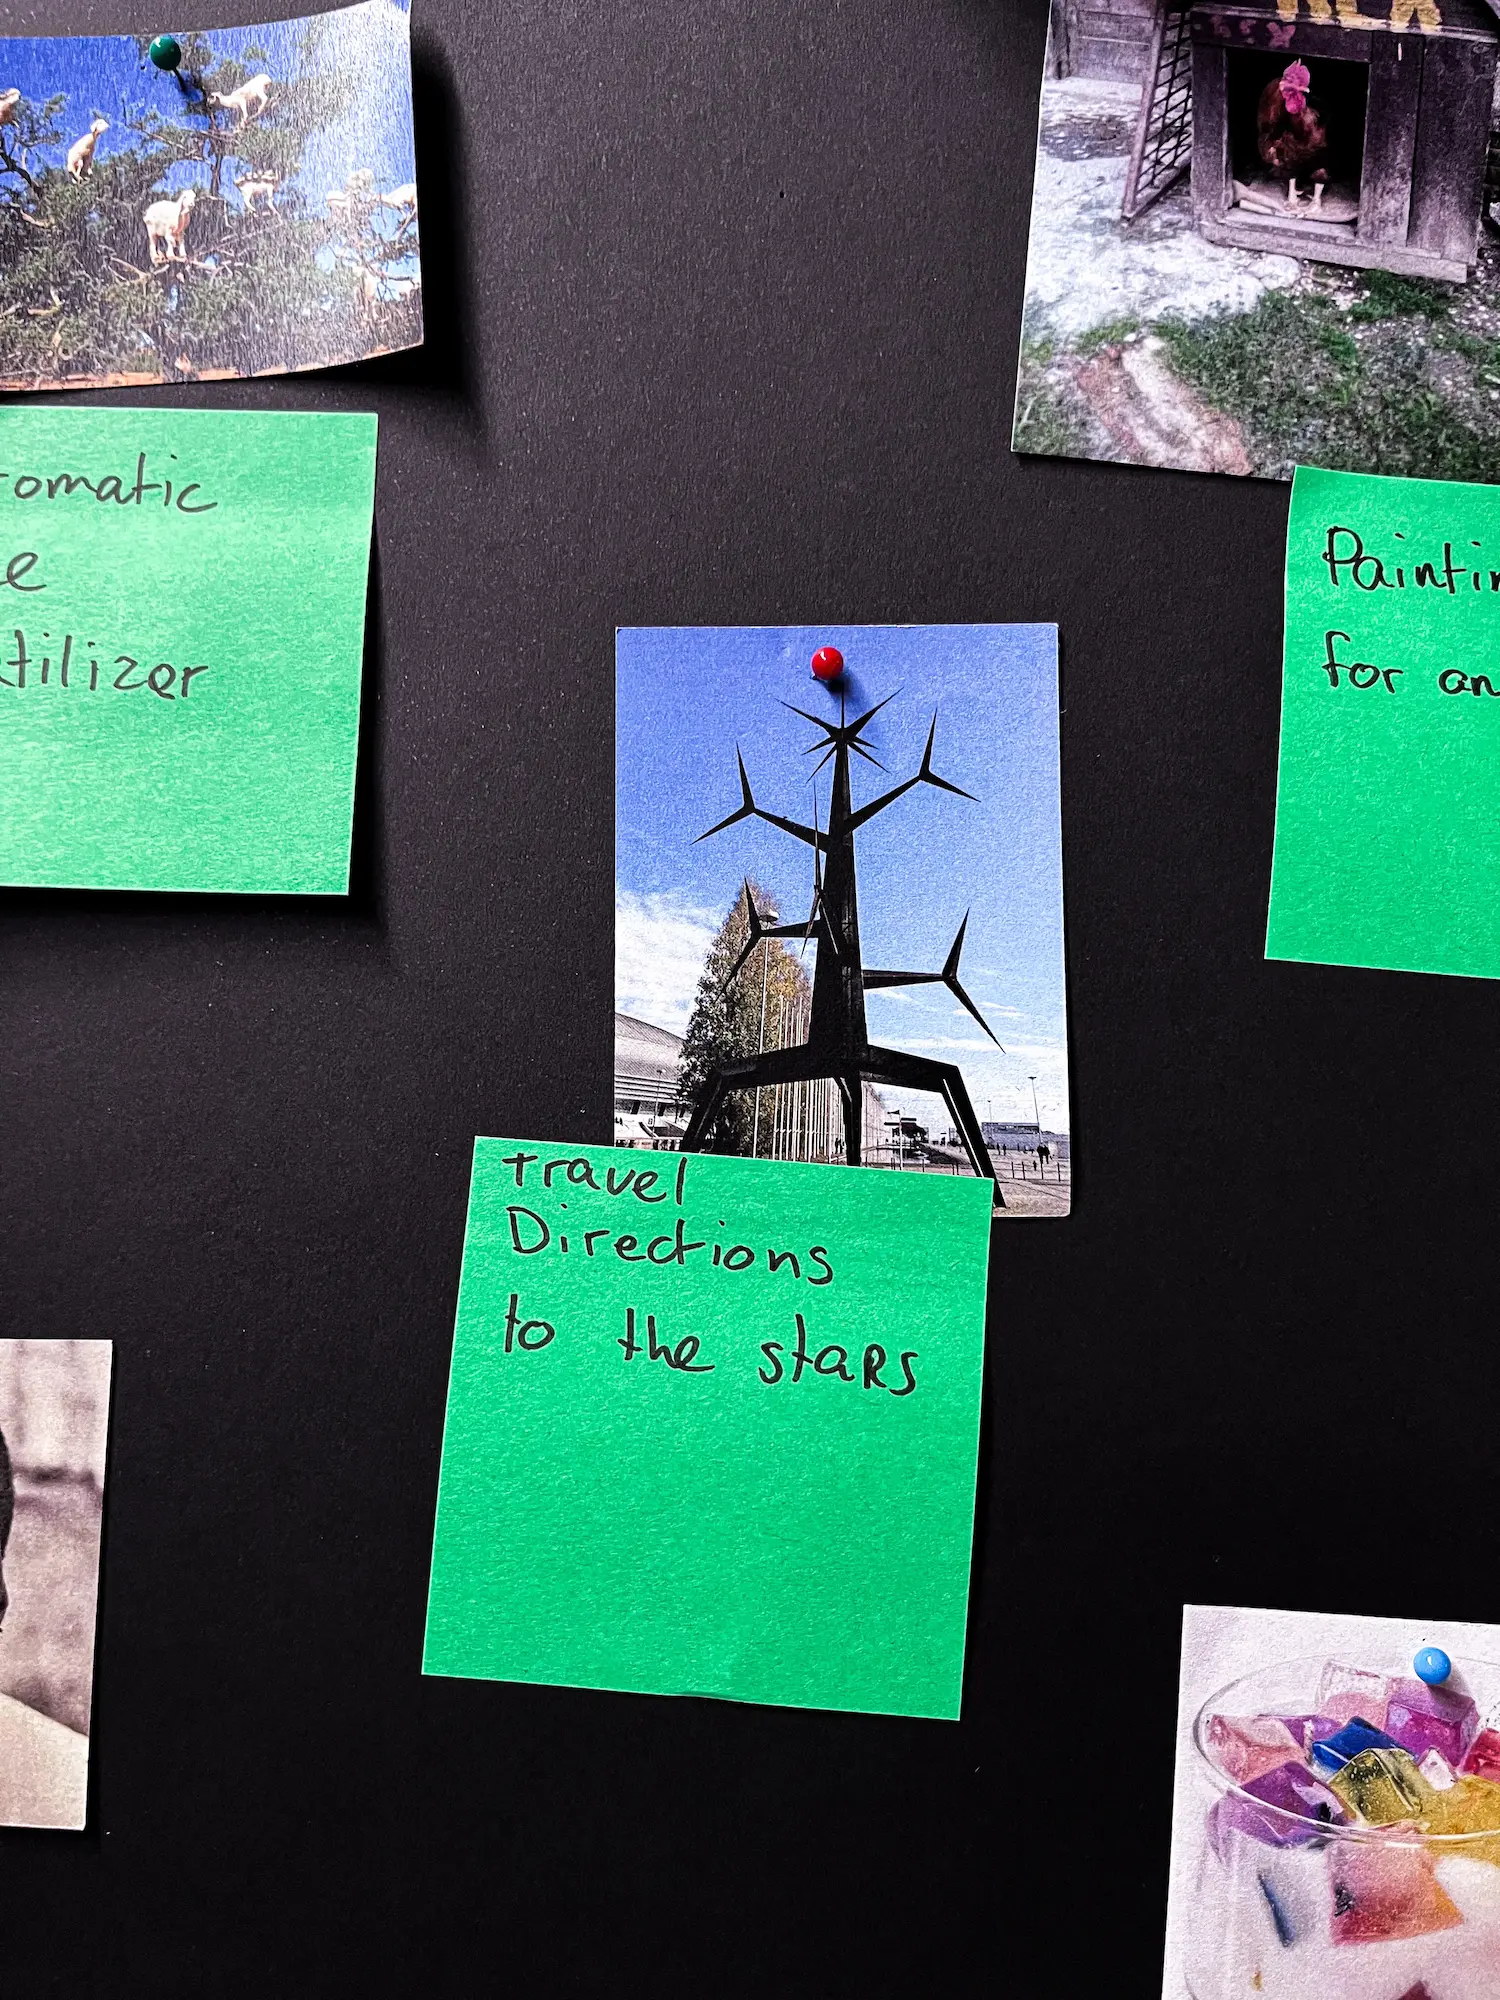 tromatic
e
tilizer
Paintin
for an
travel
Directions
to the staRs